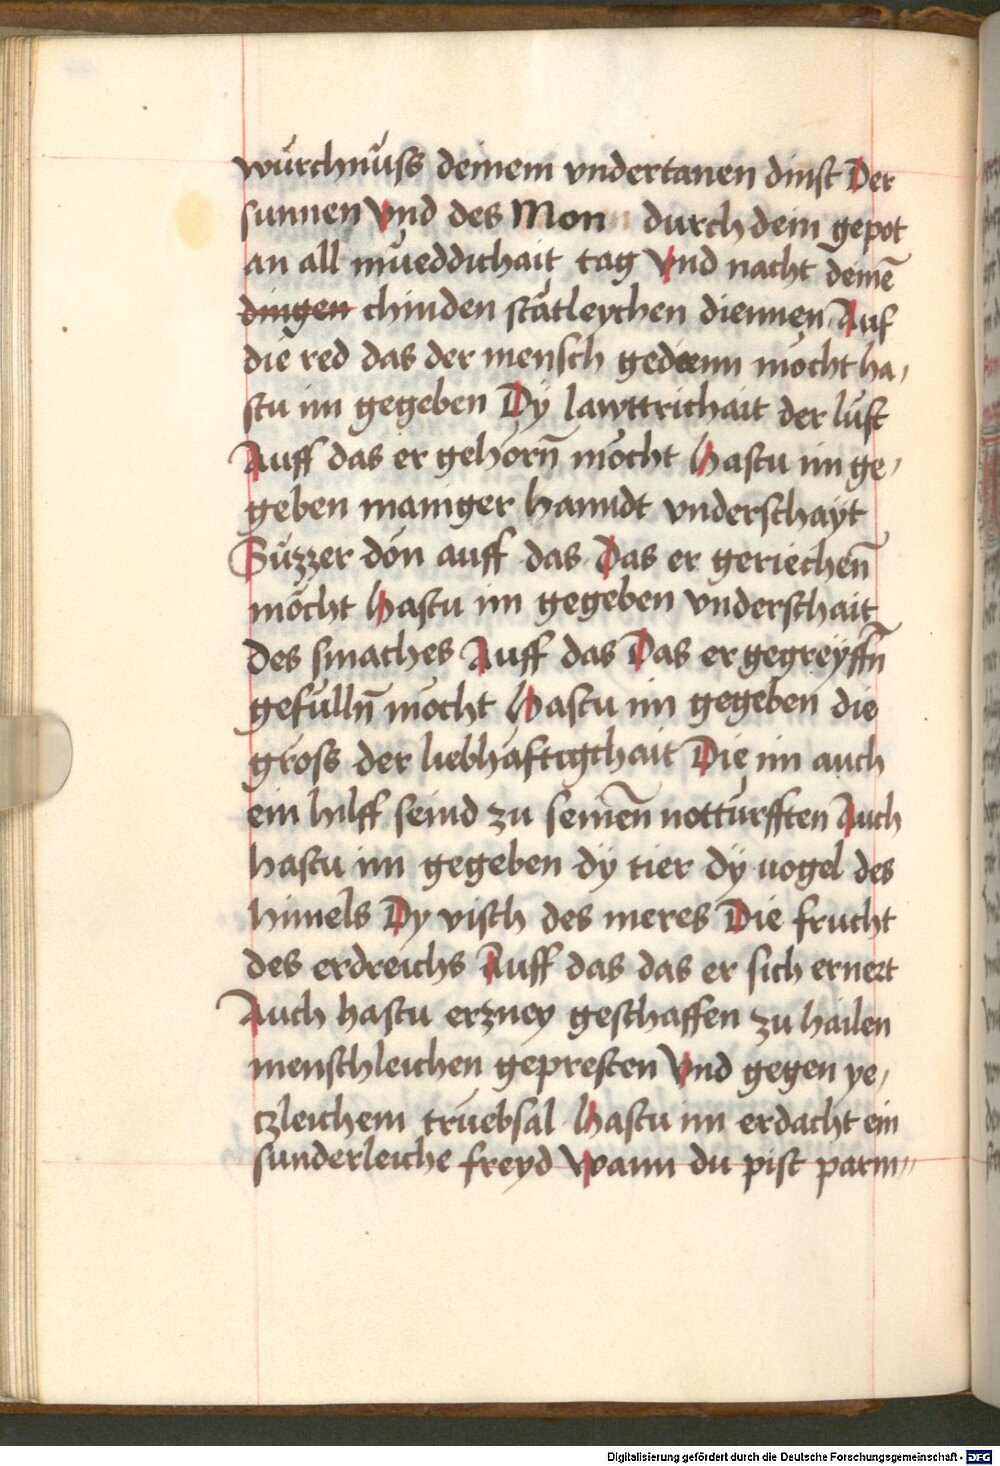 würchnüss deinem vndertanen dinst Der
sunnen Vnd des Mon durch dein gepot
an all müeddichait tag Vnd nacht deinē
dingen chinden stätleychen diennen Auf
die red das der mensch gedienn möcht ha,
stu im gegeben Dÿ lawttrichait der luft
Auff das er gehörn̄ möcht Hastu im ge,
geben maniger hanndt vnderschaÿt
Süzzer dön auff das Das er geriechen̄
möcht Hastu im gegeben vnderschait
des smaches Auff das Das er gegreÿffn̄
gefülln̄ möcht Hastu im gegeben die
gröss der liebhäftigchait Die im auch
ein hilff seind zu seinen̄ nottürfften Auch
hastu im gegeben dÿ tier dÿ uogel des
himels Dy visch des meres Die frucht
des erdreichs Auff das das er sich ernert
Auch hastu erzney geschaffen zu hailen
menschleichen gepresten Vnd gegen ye,
czleichem trüebsal Hastu im erdacht ein
sunderleiche freyd Wann du pist parm,,
Digitalisierung gefördert durch die Deutsche Forschungsgemeinschaft - DFG